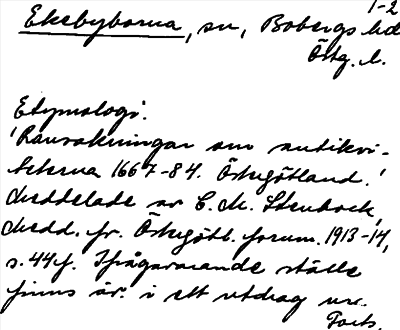 1-2
Ekebyborna, sn, Bobergs hd
Östg. l.
Etymologi.
'Rannsakningar om antikvi-
teterna 1667-84. Östergötland.'
Meddelade av C. M. Stenbock,
Medd. fr. Östergötl. fornm. 1913-14,
s. 44 f. Ifrågavarande ställe
finns äv. i ett utdrag ur.
Forts.